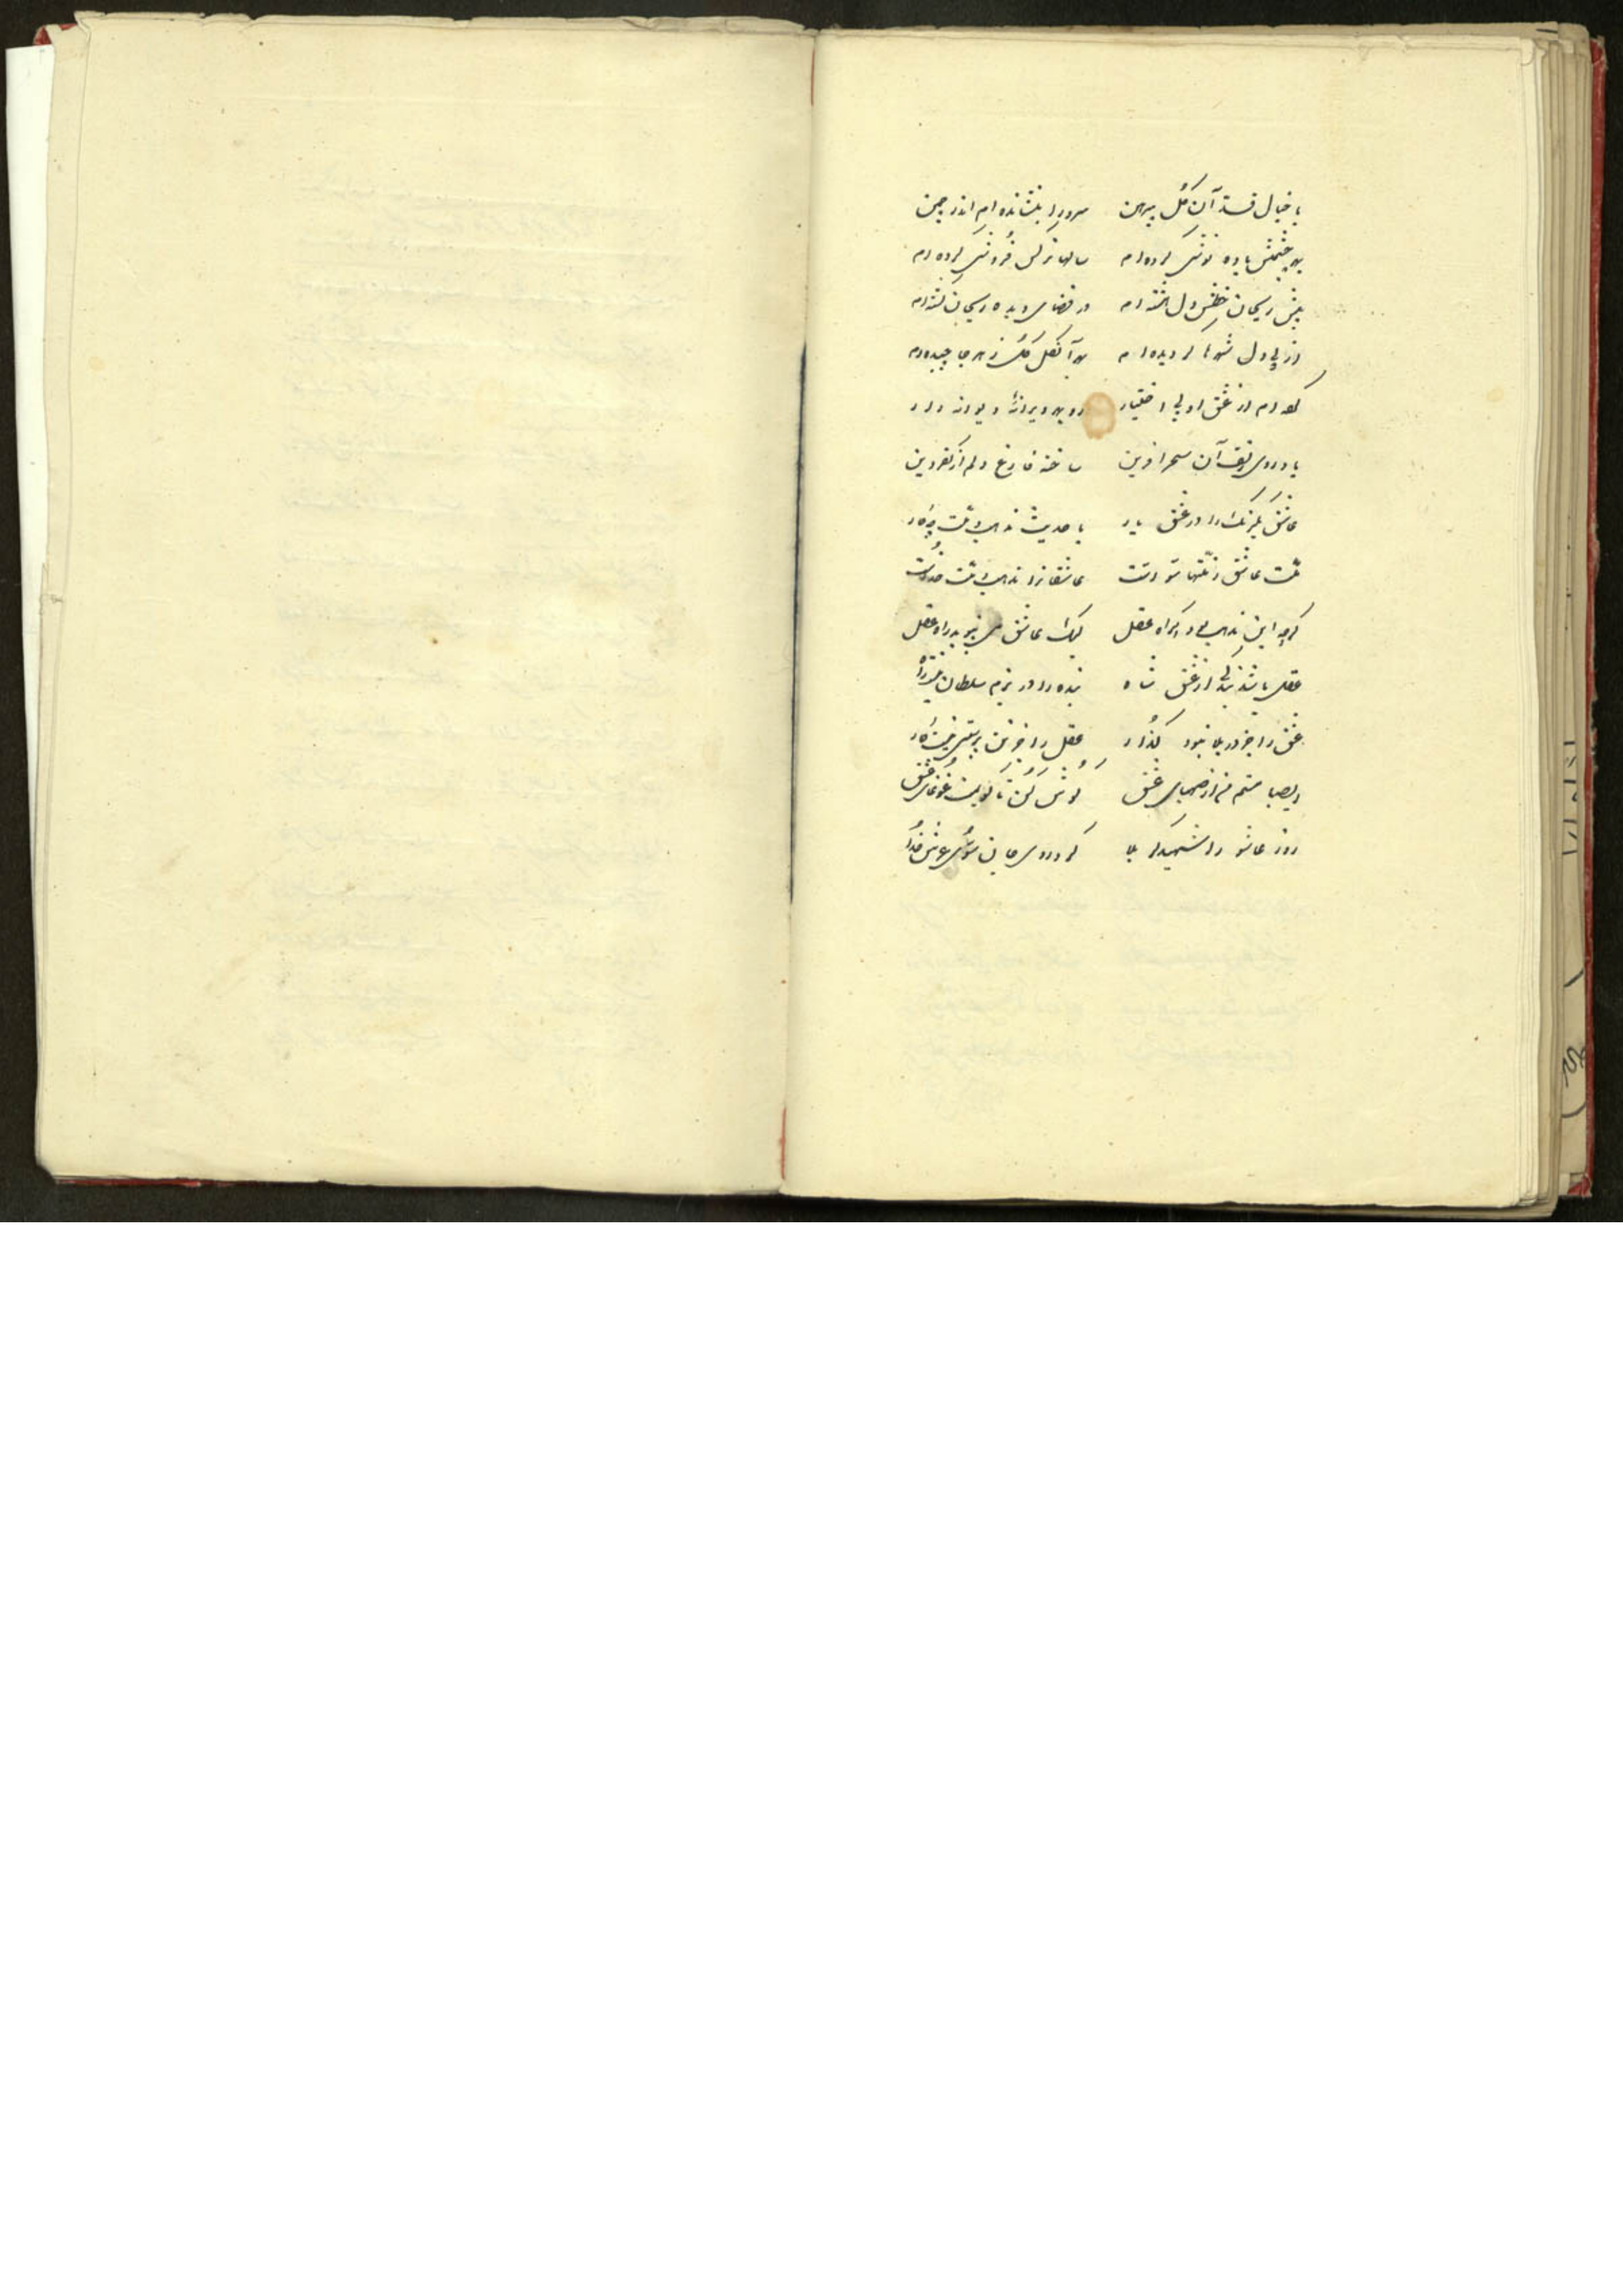 با خیال قد آن گل پیرهن سرو را بنشانده ام اندر چمن
بهر چشمش باده نوشی کرده ام سالها نرگس فروشی کرده ام
پیش ریحان خطش دل هشته ام در فضای دیده ریحان کشته ام
از پی دل شهرها گردیده ام گل ز هر جا چیده ام
کرده ام از عشق او بی اختیار رو به هر ویرانهٔ دیوانه وار
یاد روی زلف آن سحر آفرین ساخته فارغ دلم از کفر و دین
عاشق یکرنگ را در عشق یار با حدیث مذهب و ملت چکار
ملت عاشق ز ملتها سواست عاشقانرا مذهب و ملت خداست
گرچه این مذهب بود اکراه عقل لیک عاشق می نپوید راه عقل
عقل باشد بندگی از عشق شاه بنده را در بزم سلطان نیست راه
عشق را جز در بلا نبود گذار عقل را جز تن پرستی نیست کار
ای صبا مستم من از صهبای عشق گوش کن تا گویمت غوغای عشق
روز عاشورا شهید کربلا کرد روی جان سوی عرش خدا